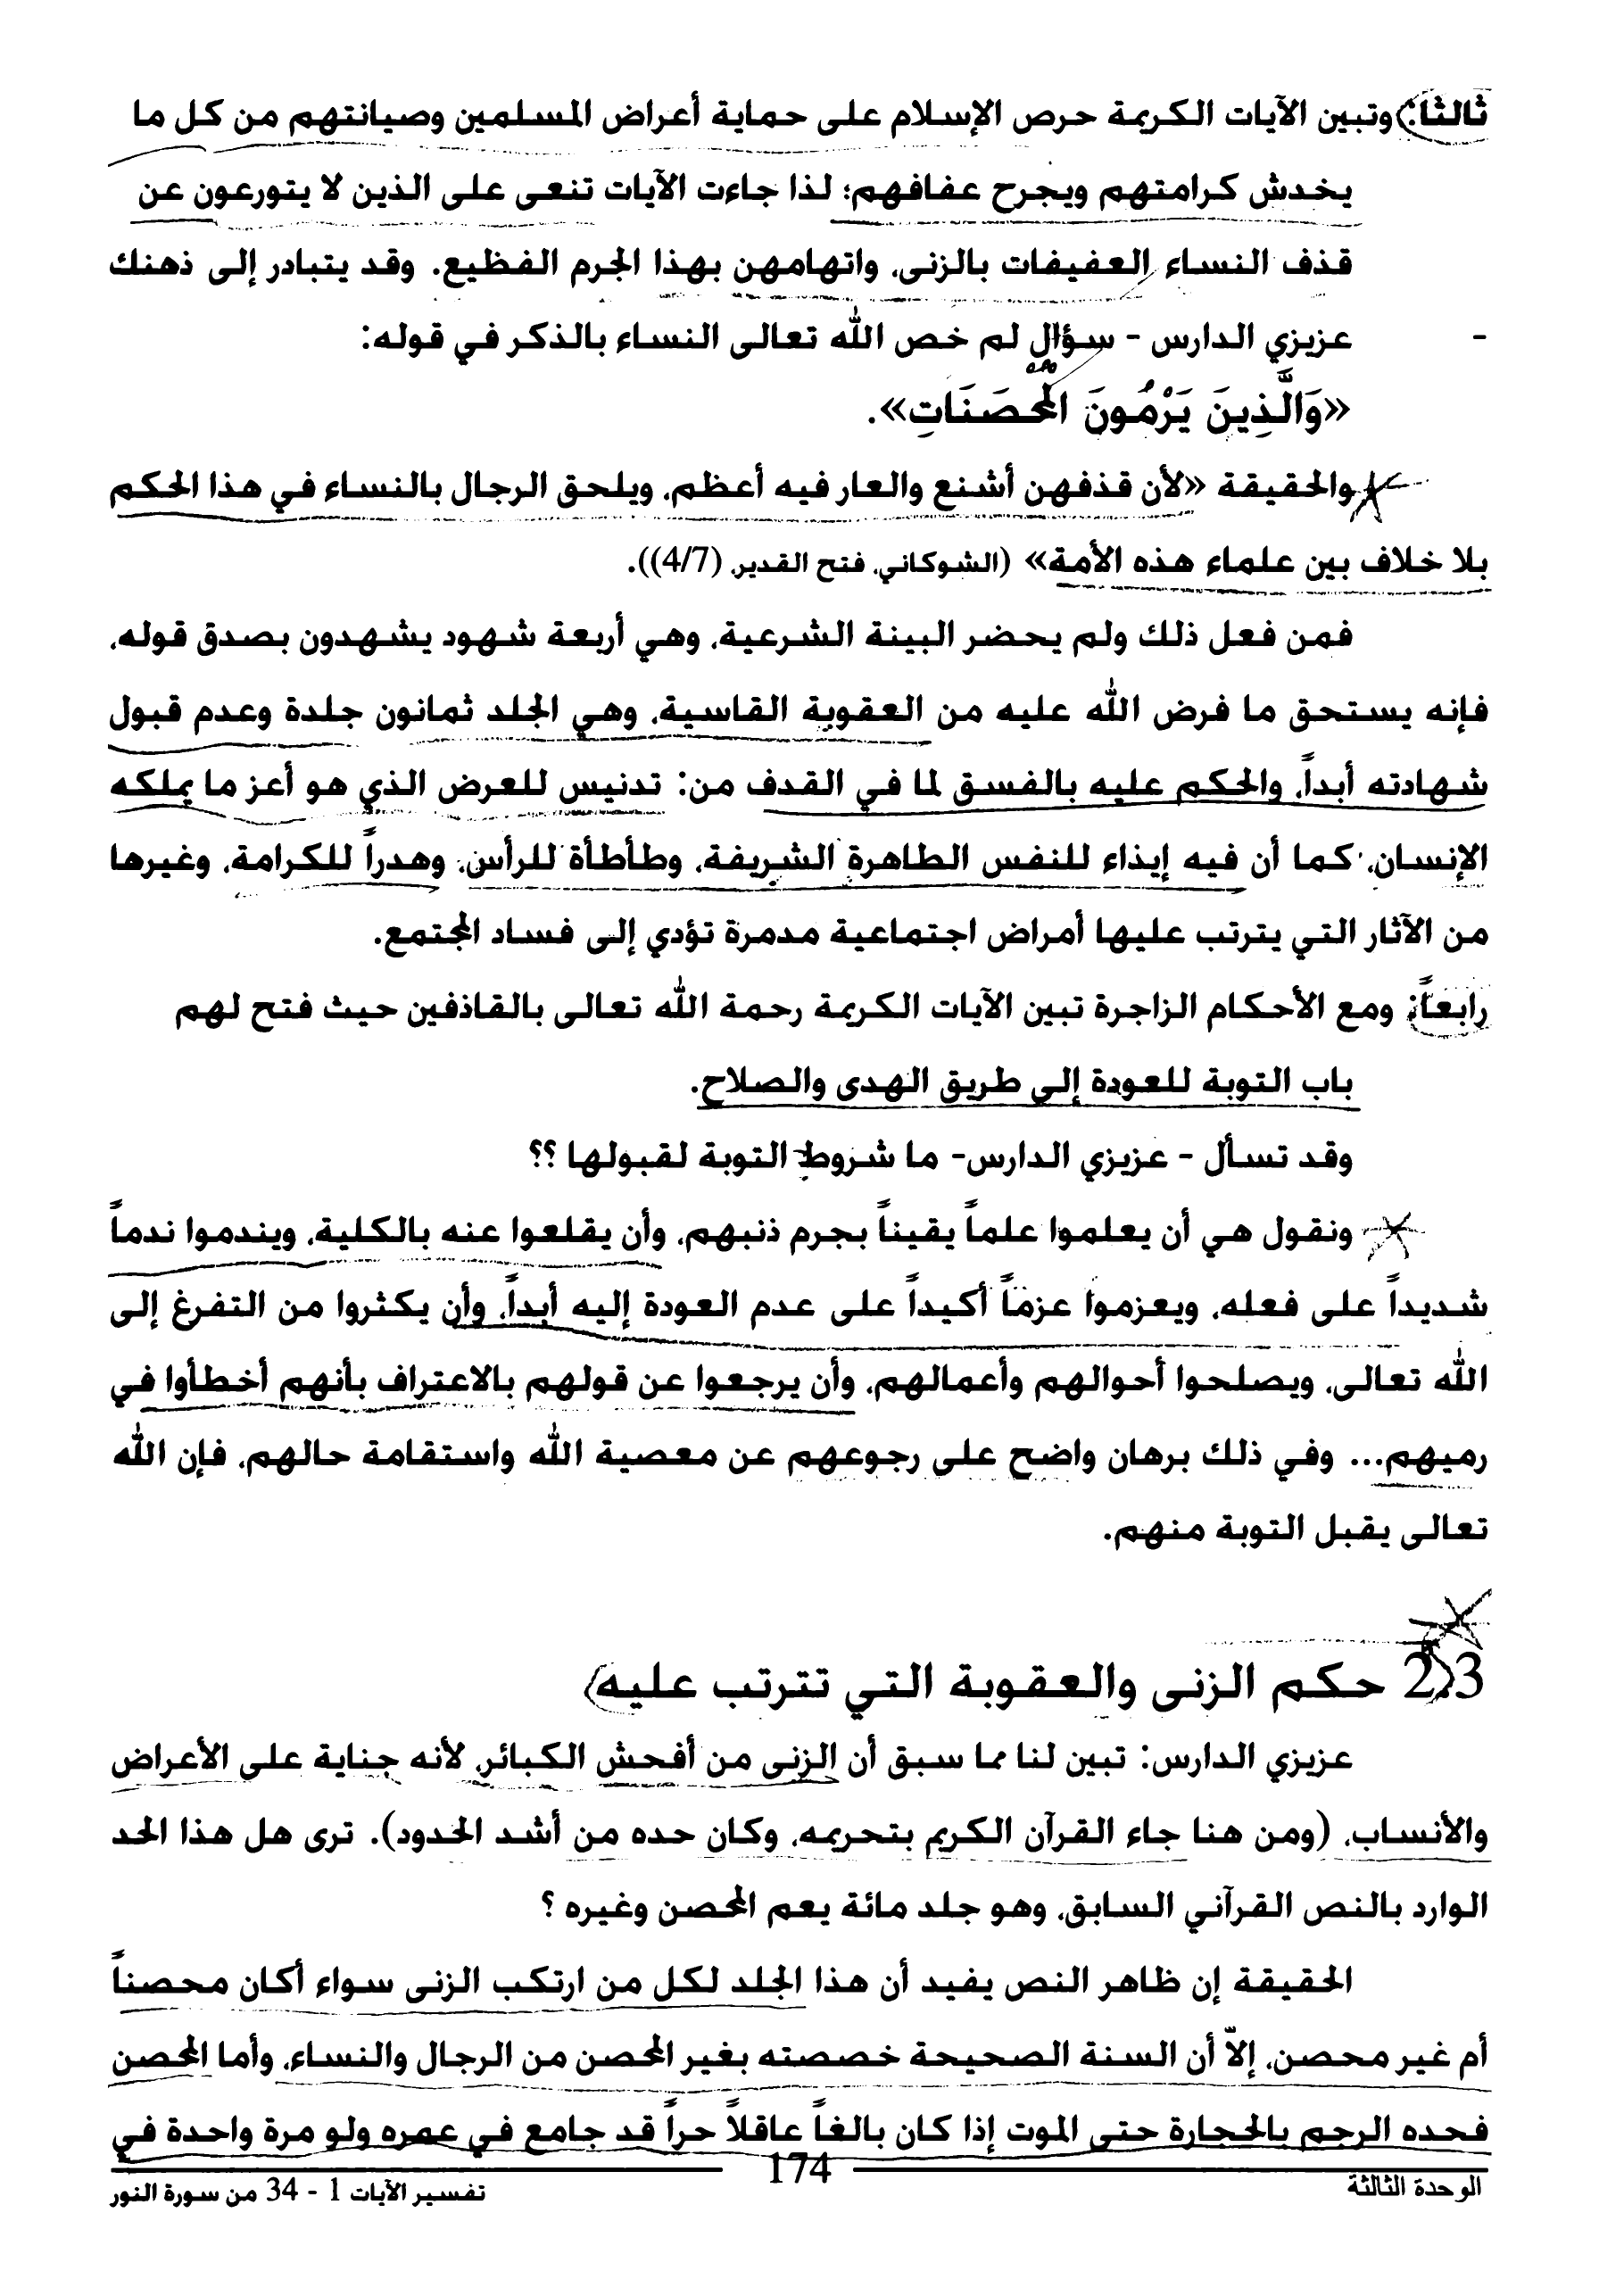 ثالثاً: وتبين الآيات الكريمة حرص الإسلام على حماية أعراض المسلمين وصيانتهم من كل ما
يخدش كرامتهم ويجرح عفافهم؛ لذا جاءت الآيات تنعى على الذين لا يتورعون عن
قذف النساء العفيفات بالزنى، واتهامهن بهذا الجرم الفظيع. وقد يتبادر إلى ذهنك
- عزيزي الدارس - سؤال لم خص الله تعالى النساء بالذكر في قوله:
«وَالَّذِينَ يَرْمُونَ الْمُحْصَنَاتِ».
والحقيقة «لأن قذفهن أشنع والعار فيه أعظم، ويلحق الرجال بالنساء في هذا الحكم
بلا خلاف بين علماء هذه الأمة» (الشوكاني، فتح القدير، (4/7)).
فمن فعل ذلك ولم يحضر البينة الشرعية، وهي أربعة شهود يشهدون بصدق قوله،
فإنه يستحق ما فرض الله عليه من العقوبة القاسية، وهي الجلد ثمانون جلدة وعدم قبول
شهادته أبداً، والحكم عليه بالفسق لما في القدف من: تدنيس للعرض الذي هو أعز ما يملكه
الإنسان، كما أن فيه إيذاء للنفس الطاهرة الشريفة، وطأطأة للرأس، وهدراً للكرامة، وغيرها
من الآثار التي يترتب عليها أمراض اجتماعية مدمرة تؤدي إلى فساد المجتمع.
رابعاً: ومع الأحكام الزاجرة تبين الآيات الكريمة رحمة الله تعالى بالقاذفين حيث فتح لهم
باب التوبة للعودة إلى طريق الهدى والصلاح.
وقد تسأل - عزيزي الدارس- ما شروط التوبة لقبولها ؟؟
ونقول هي أن يعلموا علماً يقيناً بجرم ذنبهم، وأن يقلعوا عنه بالكلية، ويندموا ندماً
شديداً على فعله، ويعزموا عزماً أكيداً على عدم العودة إليه أبداً، وأن يكثروا من التفرغ إلى
الله تعالى، ويصلحوا أحوالهم وأعمالهم، وأن يرجعوا عن قولهم بالاعتراف بأنهم أخطأوا في
رميهم... وفي ذلك برهان واضح على رجوعهم عن معصية الله واستقامة حالهم، فإن الله
تعالى يقبل التوبة منهم.
2.3 حكم الزنى والعقوبة التي تترتب عليه
عزيزي الدارس: تبين لنا مما سبق أن الزنى من أفحش الكبائر، لأنه جناية على الأعراض
والأنساب، (ومن هنا جاء القرآن الكريم بتحريمه، وكان حده من أشد الحدود). ترى هل هذا الحد
الوارد بالنص القرآني السابق، وهو جلد مائة يعم المحصن وغيره ؟
الحقيقة إن ظاهر النص يفيد أن هذا الجلد لكل من ارتكب الزنى سواء أكان محصناً
أم غير محصن، إلاّ أن السنة الصحيحة خصصته بغير المحصن من الرجال والنساء، وأما المحصن
فحده الرجم بالحجارة حتى الموت إذا كان بالغاً عاقلاً حراً قد جامع في عمره ولو مرة واحدة في
الوحدة الثالثة 174 تفسير الآيات 1 - 34 من سورة النور